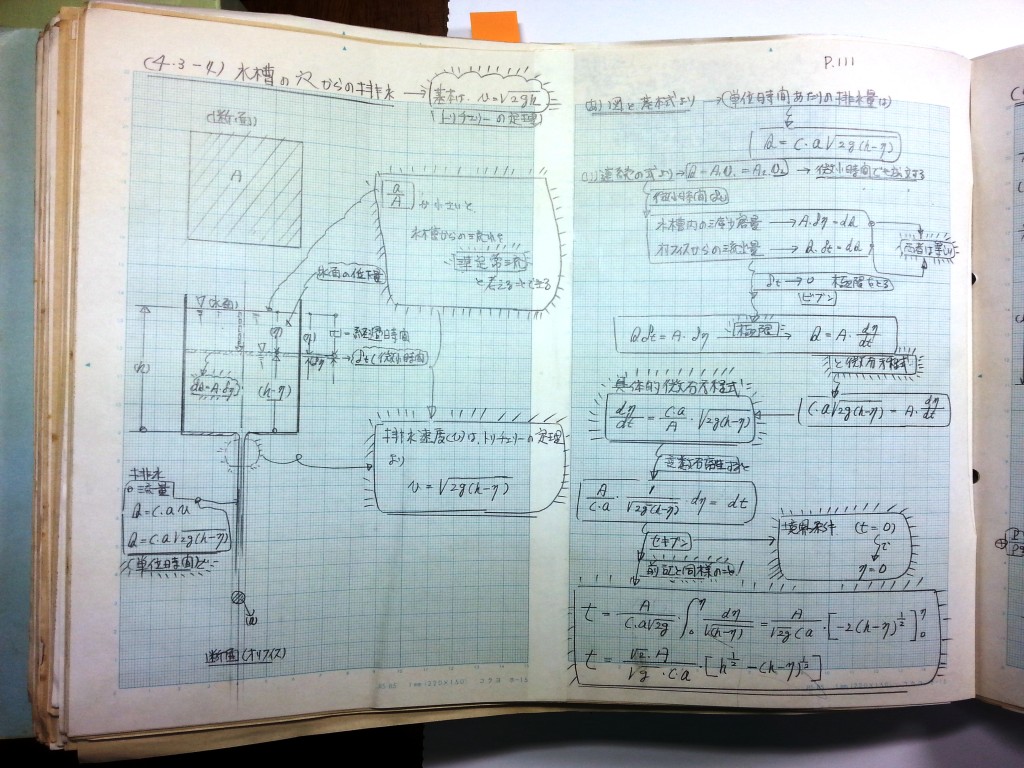 (4・3-4.) 水槽の穴からの排水
基本は、v=√2gh
トリチェリーの定理
(断・面)
A
a/A が小さいと、
水槽からの流れを
準定常流
と考える事ができる
水面の低下量
▽(水面)
η
h
(h-η)
dη
t-経過時間
δt(微小時間)
dQ=A.δη
排水速度(v)は、トリチェリーの定理
より
v=√2g(h-η)
排水
流量
Q=C.a v
Q=C.a√2g(h-η)
(単位時間)で
(a)
断面(オリフィス)
P.111
(a) 図と基本式より → (単位時間あたりの排水量は)
Q=C.a√2g(h-η)
連続の式より → Q=A₁.v₁=A₂.v₂ → 微小時間でも成立する
微小時間 δt
水槽内の減少容量 → A.δη=dQ
オリフィスからの流出量 → Q.δt=dQ
両者は等しい
δt→0 極限をとる
(ビブン)
Qδt=A・δη 極限 Q=A・dη/dt
微分方程式
具体的微分方程式
dη/dt=C.a/A・√2g(h-η)
C.a√2g(h-η)=A・dη/dt
変数分離すれば
A/C.a・1/√2g(h-η)・dη=dt
(セキブン)
境界条件 (t=0)
で
η=0
前記と同様のこと!
t=A/C.a√2g ∫₀^η dη/√(h-η)=A/√2g C.a・[-2(h-η)^1/2]₀^η
t=√2.A/√g・C.a・[h^1/2-(h-η)^1/2]